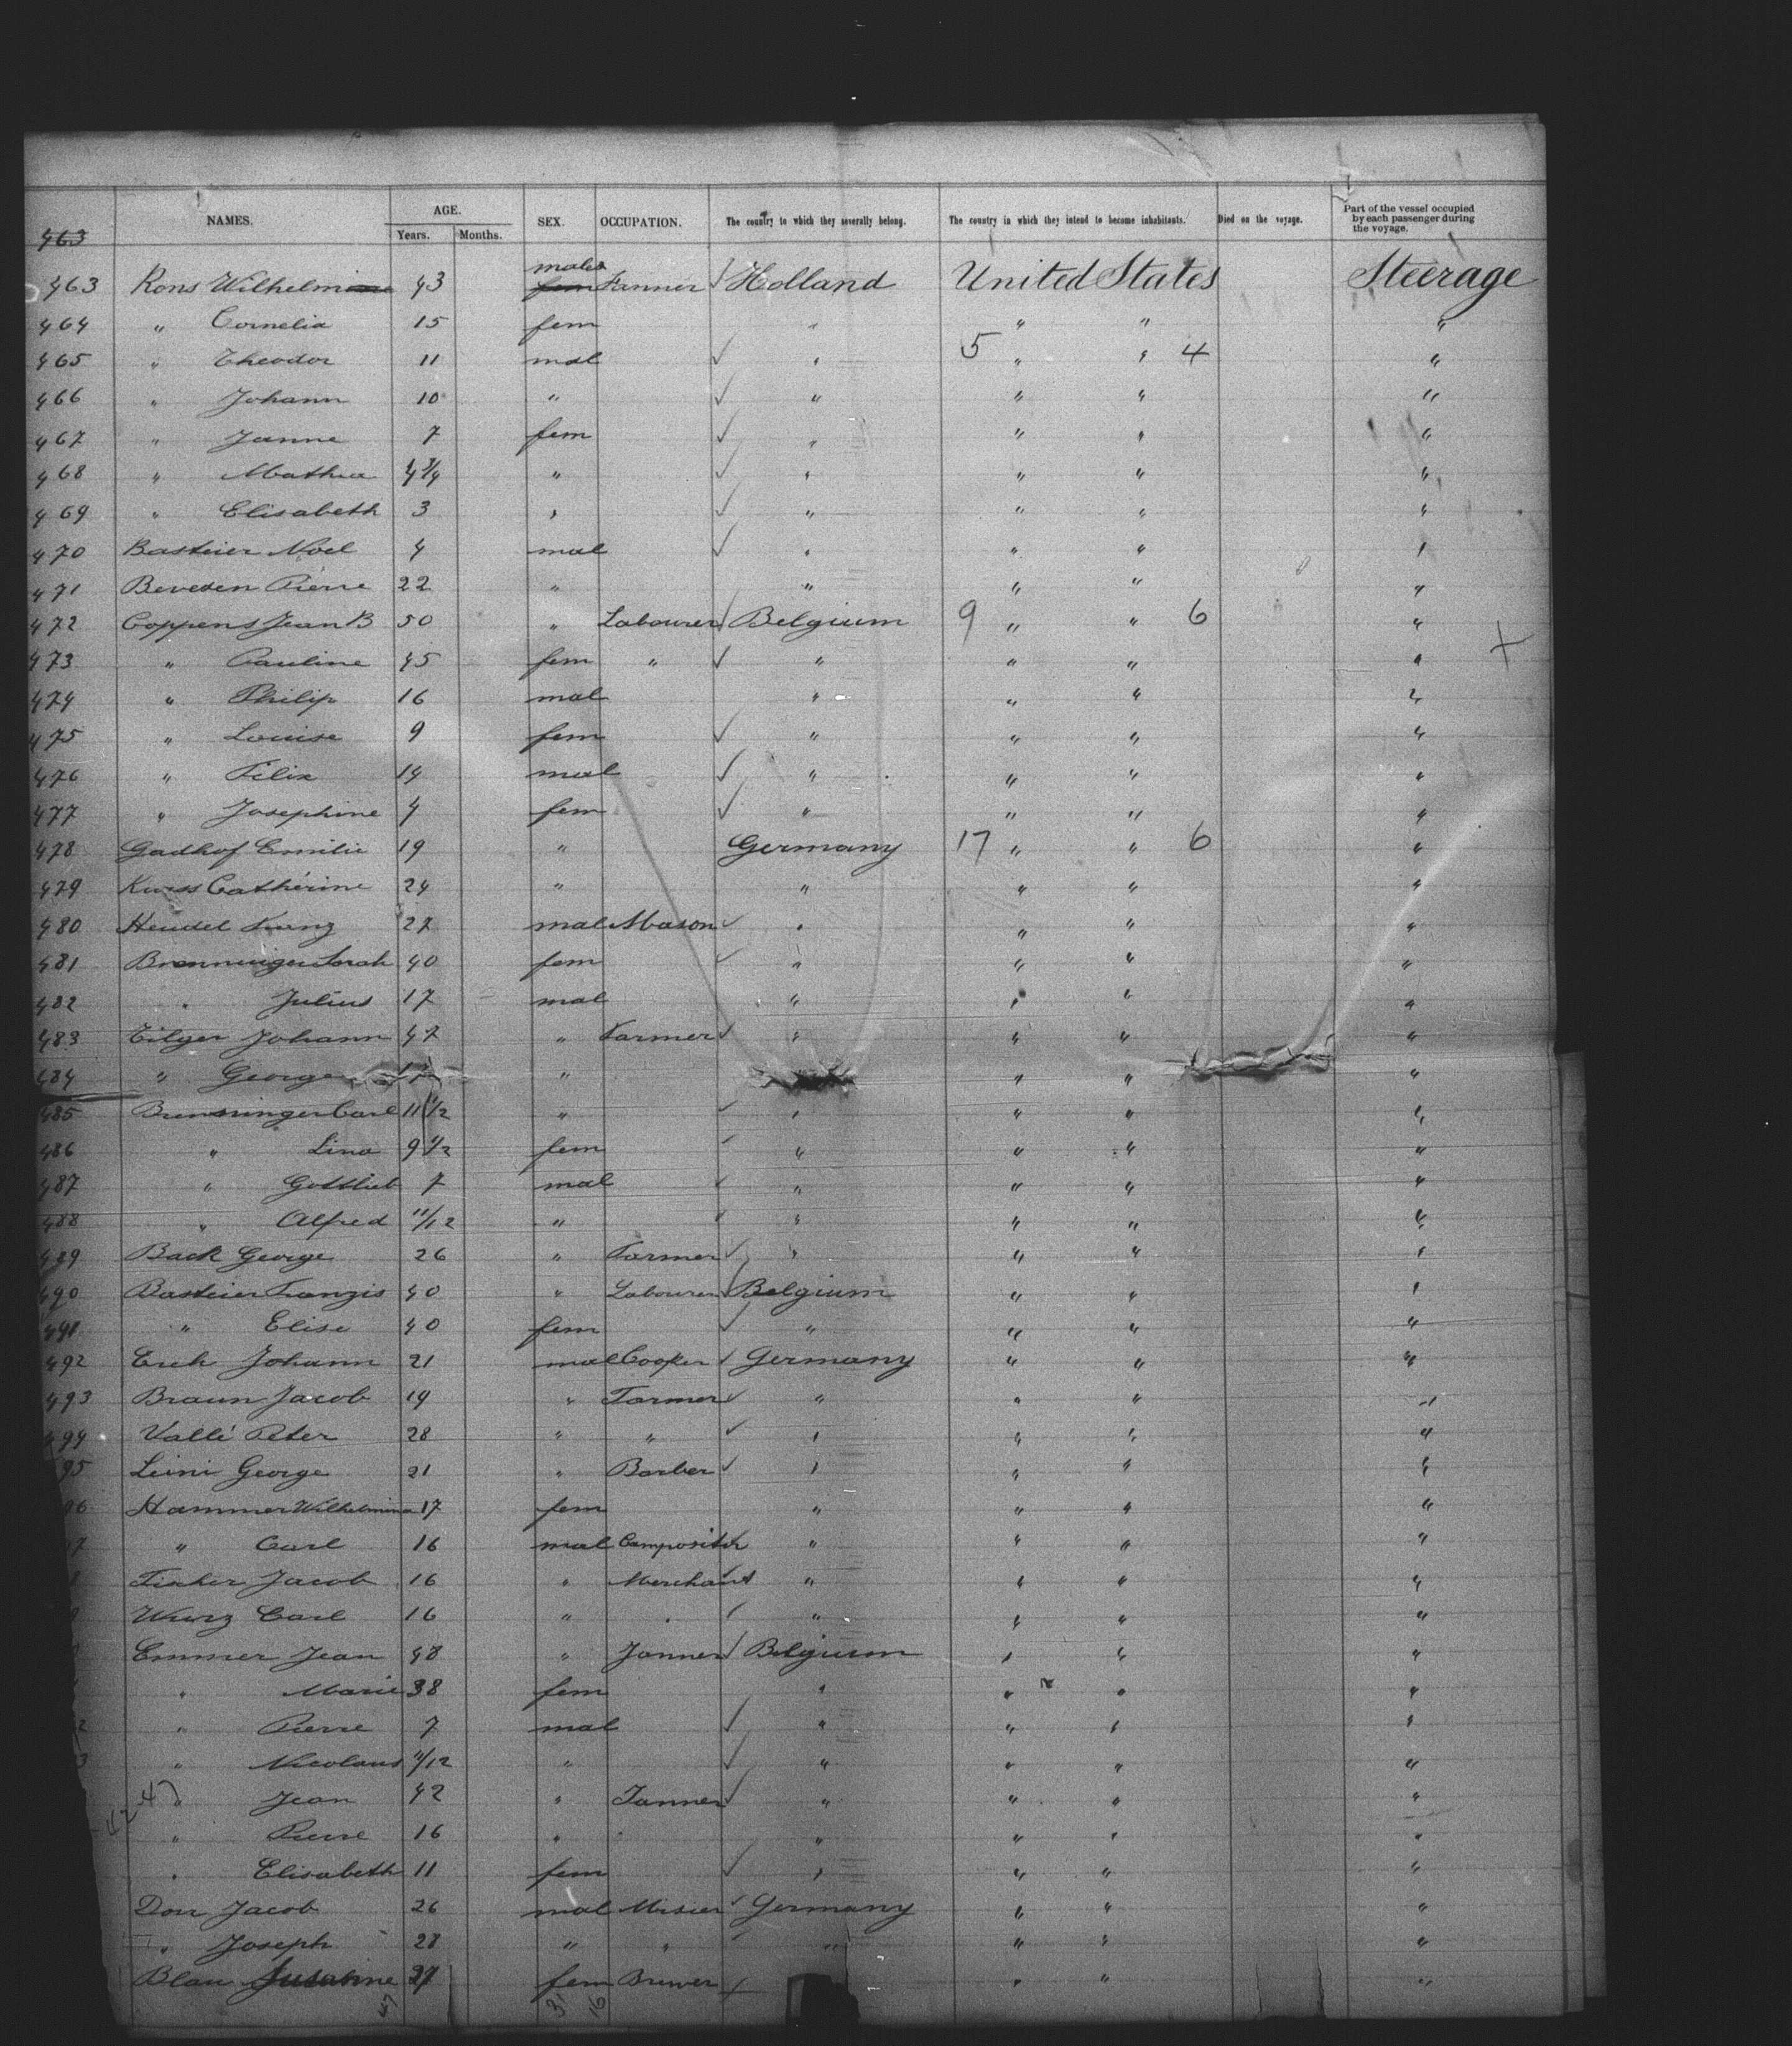 NAMES. AGE. SEX. OCCUPATION. The country to which they severally belong. The country in which they intend to become inhabitants. Died on the voyage. Part of the vessel occupied by each passenger during the voyage.
Years. Months.
463
male
463 Kons Wilhelmine 43 fem Farmer Holland United States Steerage
464 " Cornelia 15 fem " " " "
465 " Theodor 11 mal " 5 " " 4 "
466 " Johann 10 " " " " "
467 " Janne 7 fem " " " "
468 " 4 3/4 " " " " "
469 " Elisabeth 3 " " " " "
470 Bastieier Noel 4 mal " " " "
471 Bevesen Pierre 22 " " " " "
472 Coppens Jean B 50 " Labourer Belgium 9 " " 6 "
473 " Pauline 45 fem " " " " "
474 " Philip 16 mal " " " "
475 " Louise 9 fem " " " "
476 " Felix 14 mal " " " "
477 " Josephine 4 fem " " " "
478 Gadhof Emilie 19 " Germany 17 " " 6 "
479 Kurss Cathérine 24 " " " " "
480 Heudel 27 mal Mason " " " "
481 Brenninger Sarah 40 fem " " " "
482 " Julius 17 mal " " " "
483 Eilger Johann 47 " Farmer " " " "
484 " George " " " "
485 Brenninger Carl 11 1/2 " " " " "
486 " Lina 9 1/2 fem " " " "
487 " Gottlieb 7 mal " " " "
488 " Alfred 11/12 " " " " "
489 Back George 26 " Farmer " " " "
490 Bastieier Franzis 40 " Labourer Belgium " " "
491 " Elise 40 fem " " " "
492 Erch Johann 21 mal Cooper Germany " " "
493 Braun Jacob 19 " Farmer " " " "
494 Vallé Peter 28 " " " " " "
95 Leini George 21 " Barber " " " "
96 Hammer Wilhelmina 17 fem " " " "
7 " Carl 16 mal Compositor " " " "
Fischer Jacob 16 " Merchant " " " "
Wurz Carl 16 " " " " " "
Emmer Jean 48 " Janner Belgium " " "
" Marie 38 fem " " " "
2 " Pierre 7 mal " " " "
3 " Nicolaus 11/12 " " " " "
" Jean 42 " Tanner " " " "
" Pierre 16 " " " " "
" Elisabeth 11 fem " " " "
Dour Jacob 26 mal Misier Germany " " "
" Joseph 28 " " " " " "
Blau 27 fem Brewer " " "
47 31 16